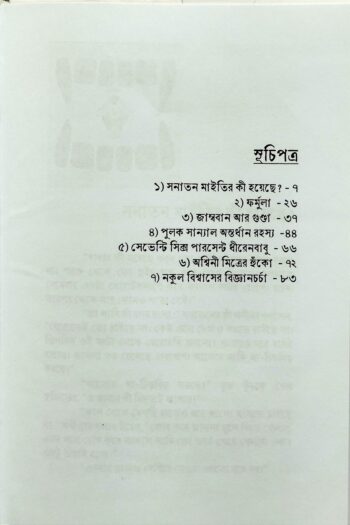 সূচিপত্র
১) সনাতন মাইতির কী হয়েছে? - ৭
২) ফর্মুলা - ২৬
৩) জাম্ববান আর গুপ্তা - ৩৭
৪) পুলক সান্যাল অন্তর্ধান রহস্য -৪৪
৫) সেভেন্টি সিক্স পারসেন্ট ধীরেনবাবু - ৬৬
৬) অশ্বিনী মিত্রের হুঁকো - ৭২
৭) নকুল বিশ্বাসের বিজ্ঞানচর্চা - ৮৩